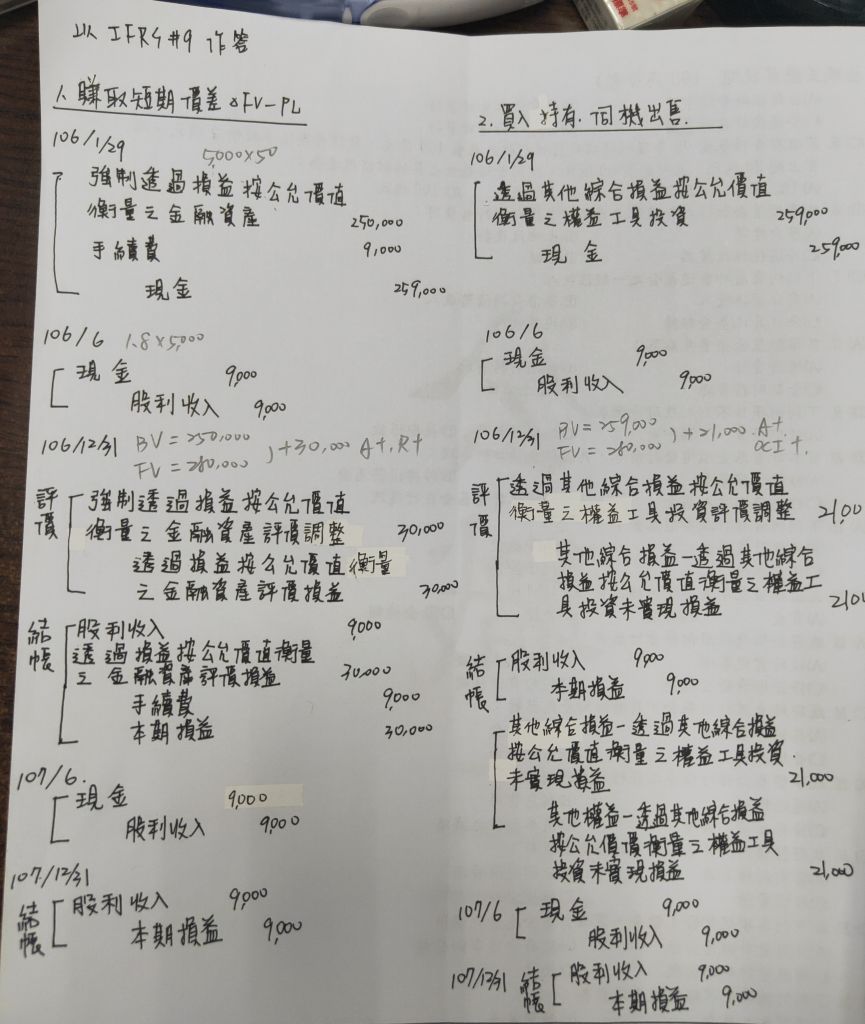 以 IFRS #9 作答
1. 賺取短期價差 FV-PL
106/1/29 5,000×50
強制透過損益按公允價值
衡量之金融資產 250,000
手續費 9,000
現金 259,000
106/6 1.8×5,000
現金 9,000
股利收入 9,000
106/12/31 BV=250,000
FV=280,000 )+30,000 A+, R+
評價
強制透過損益按公允價值
衡量之金融資產評價調整 30,000
透過損益按公允價值衡量
之金融資產評價損益 30,000
結帳
股利收入 9,000
透過損益按公允價值衡量
之金融資產評價損益 30,000
手續費 9,000
本期損益 30,000
107/6.
現金 9,000
股利收入 9,000
107/12/31
結帳
股利收入 9,000
本期損益 9,000
2. 買入持有. 伺機出售.
106/1/29
透過其他綜合損益按公允價值
衡量之權益工具投資 259,000
現金 259,000
106/6
現金 9,000
股利收入 9,000
106/12/31 BV=259,000
FV=280,000 )+21,000. A+
OCI+.
評價
透過其他綜合損益按公允價值
衡量之權益工具投資評價調整 21,00
其他綜合損益-透過其他綜合
損益按公允價值衡量之權益工
具投資未實現損益 21,0
結帳
股利收入 9,000
本期損益 9,000
其他綜合損益-透過其他綜合損益
按公允價值衡量之權益工具投資
未實現損益 21,000
其他權益-透過其他綜合損益
按公允價值衡量之權益工具
投資未實現損益 21,000
107/6 現金 9,000
股利收入 9,000
107/12/31 結帳 股利收入 9,000
本期損益 9,000